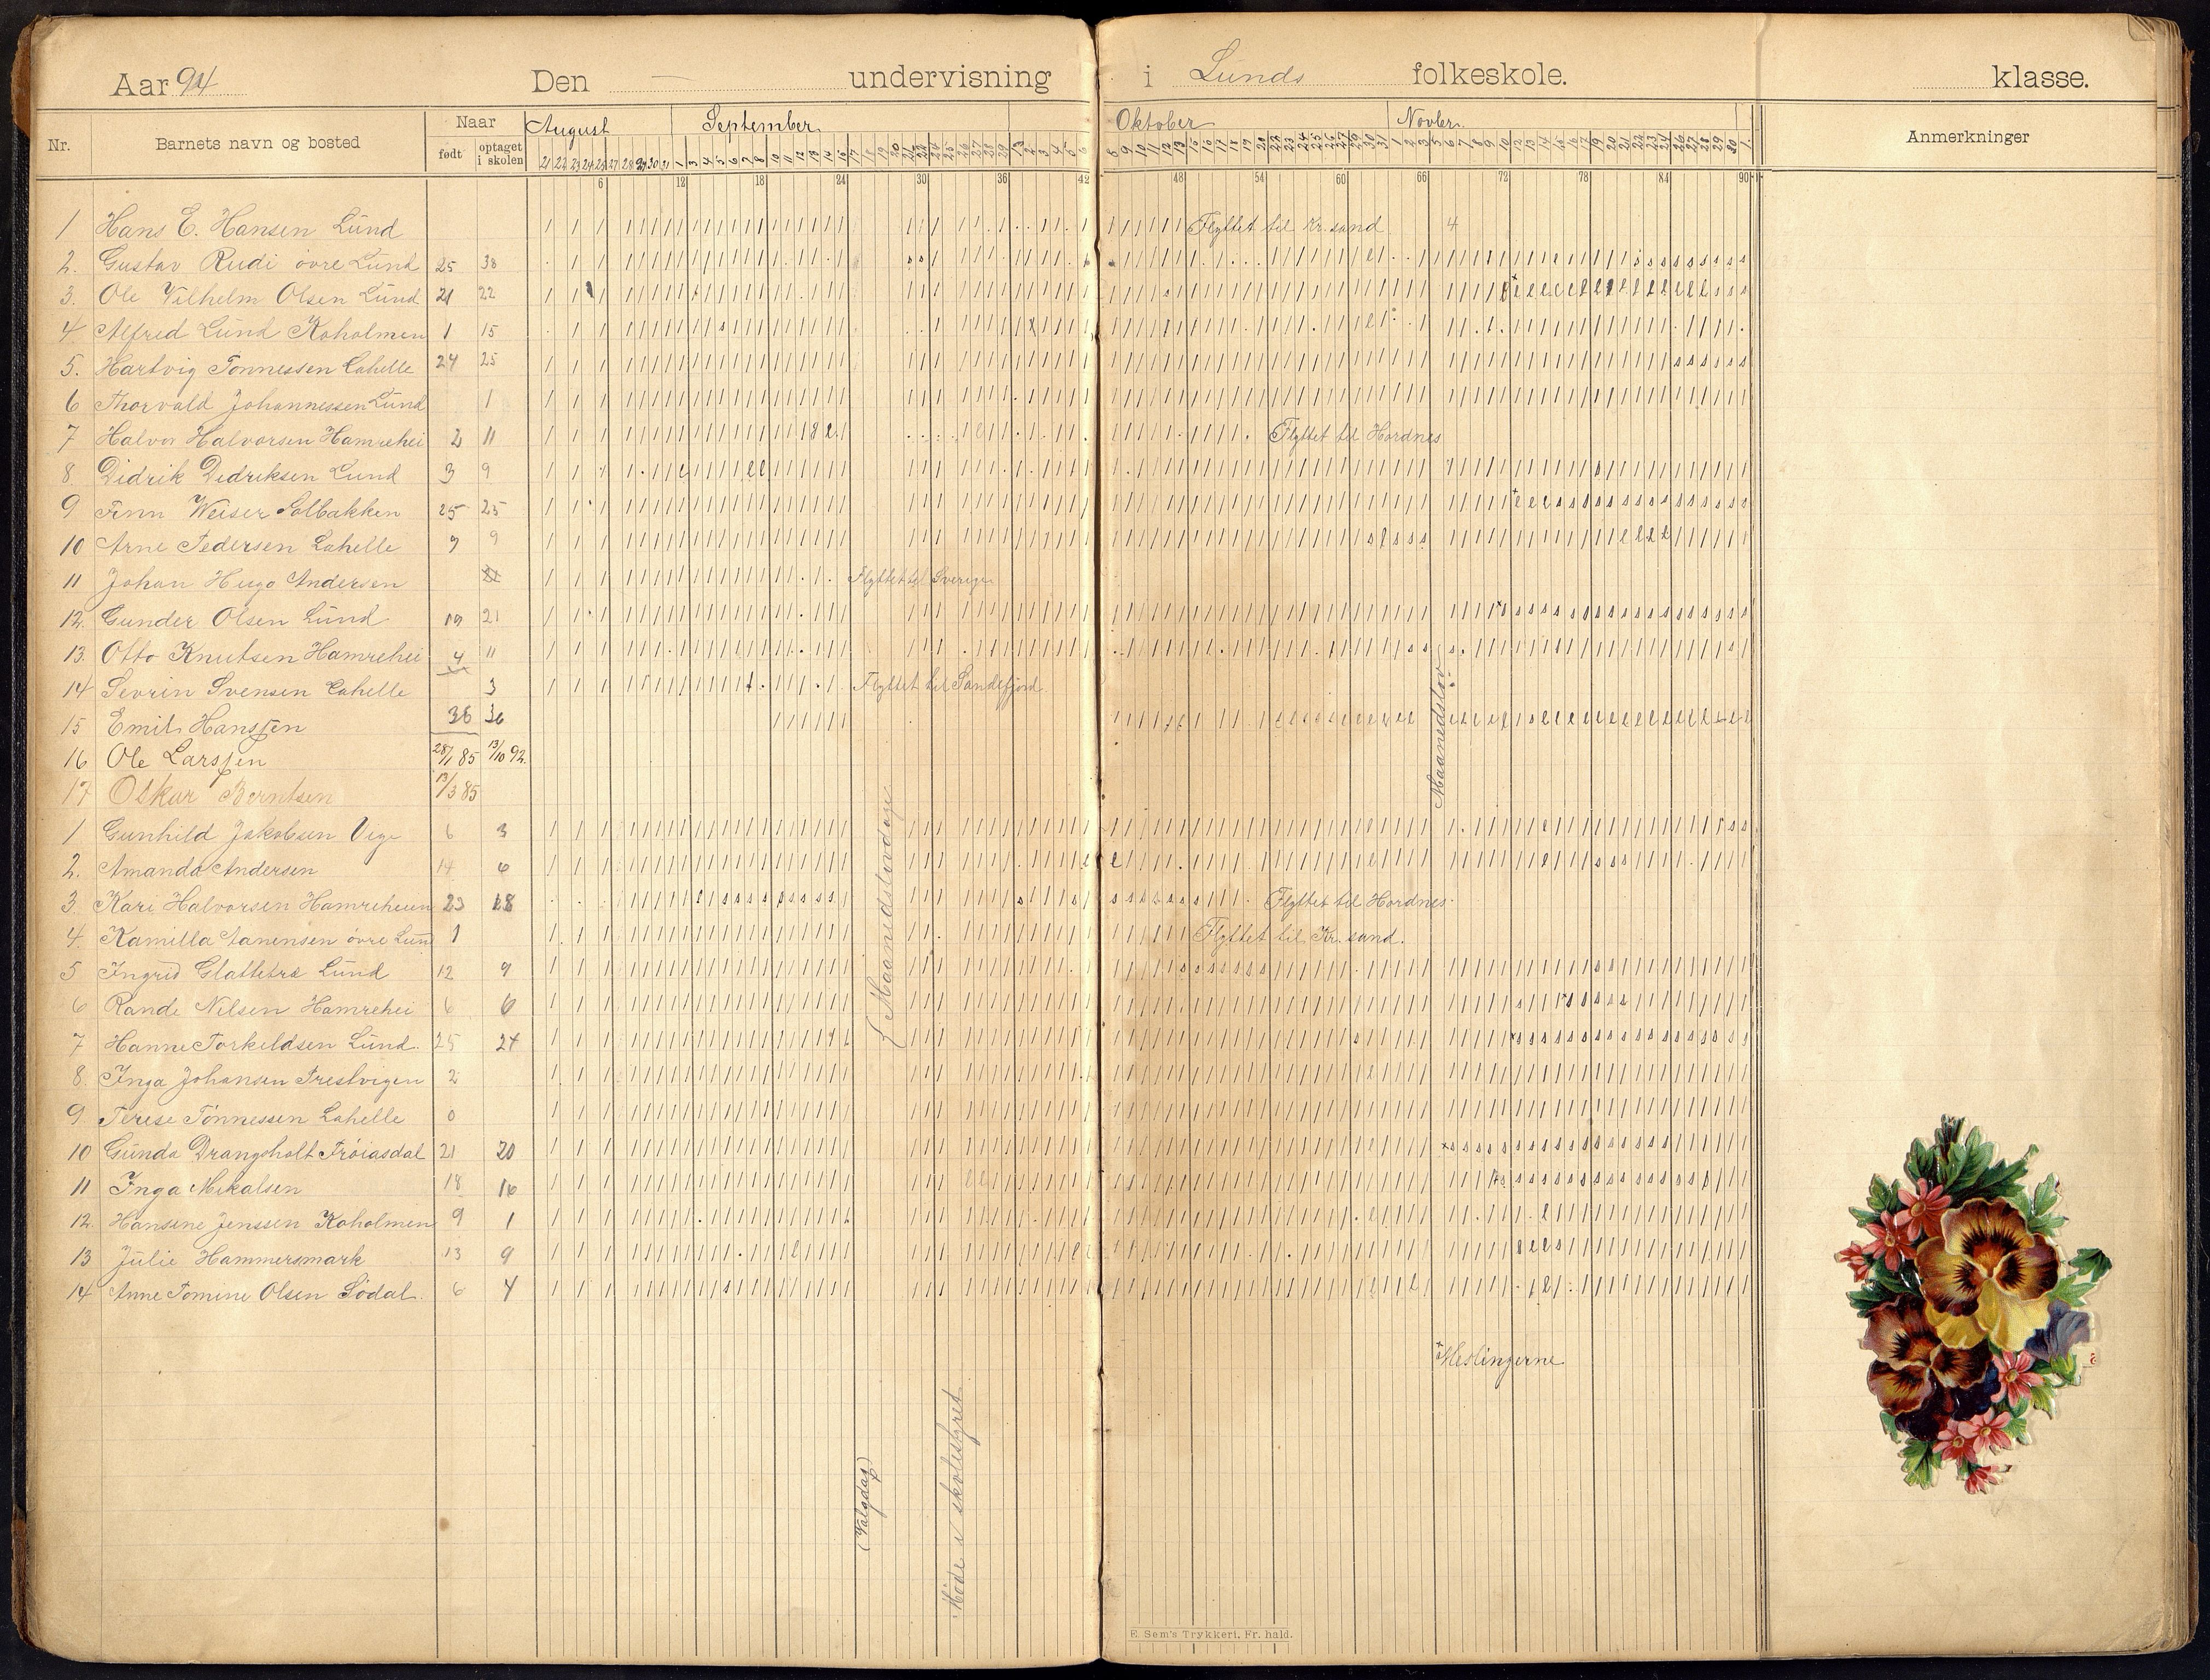 Aar 94 Den — undervisning i Lunds folkeskole. klasse.
Nr. Barnets navn og bosted Naar født optaget i skolen August September Oktober Novbr. Anmerkninger
21 22 23 24 25 27 28 29 30 31 1 3 4 5 6 7 8 10 11 12 13 14 15 17 18 19 20 21 22 24 25 26 27 28 29 1 2 3 4 5 6 8 9 10 11 12 13 15 16 17 18 19 20 22 23 24 25 26 27 29 30 31 1 2 3 5 6 7 8 9 10 12 13 14 15 16 17 19 20 21 22 23 24 26 27 28 29 30 1.
6 12 18 24 30 36 42 48 54 60 66 72 78 84 90
1 Hans E. Hansen Lund Flyttet til Kr.sand 4
2. Gustav Rudi øvre Lund 25 38
3. Ole Vilhelm Olsen Lund 21 22
4 Alfred Lund Koholmen 1 15
5. Hartvig Tønnessen Lahelle 24 25
6 Thorvald Johannessen Lund 1
7 Halvor Halvorsen Hamrehei 2 11 Flyttet til Hordnes
8. Didrik Didriksen Lund 3 9
9 Finn Weiser Solbakken 25 25
10 Arne Pedersen Lahelle 9 9
11 Johan Hugo Andersen Flyttet til Sverige
12. Gunder Olsen Lund 19 21
13. Otto Knutsen Hamrehei 4 11
14 Sevrin Svensen Lahelle 3 Flyttet til Sandefjord
15 Emil Hanssen 36 36
16 Ole Larssen 28/1 85 13/10 92.
17 Oskar Berntsen 13/3 85
Maanedslov
1 Gunhild Jakobsen Vige 6 3
2. Amanda Andersen 14 6
3. Kari Halvorsen Hamreheien 23 28 Flyttet til Hordnes.
4. Kamilla Aanensen øvre Lund 1 Flyttet til Kr.sand.
Maanedslovdage
5 Ingrid Glattetre Lund 12 9
6 Rande Nilsen Hamrehei 6 6
7 Hanne Torkeldsen Lund. 25 24
8. Inga Johansen Prestvigen 2
9 Terese Tønnessen Lahelle 0
10 Gunda Drangsholt Frøiasdal 21 20
11 Inga Mikalsen 18 16
12. Hansine Jenssen Koholmen 9 1
13 Julie Hammersmark 13 9
14 Anne Tomine Olsen Sødal. 6 4
x Meslingerne
(Valgdag)
Møde i skolestyret
E. Sem's Trykkeri. Fr. hald.